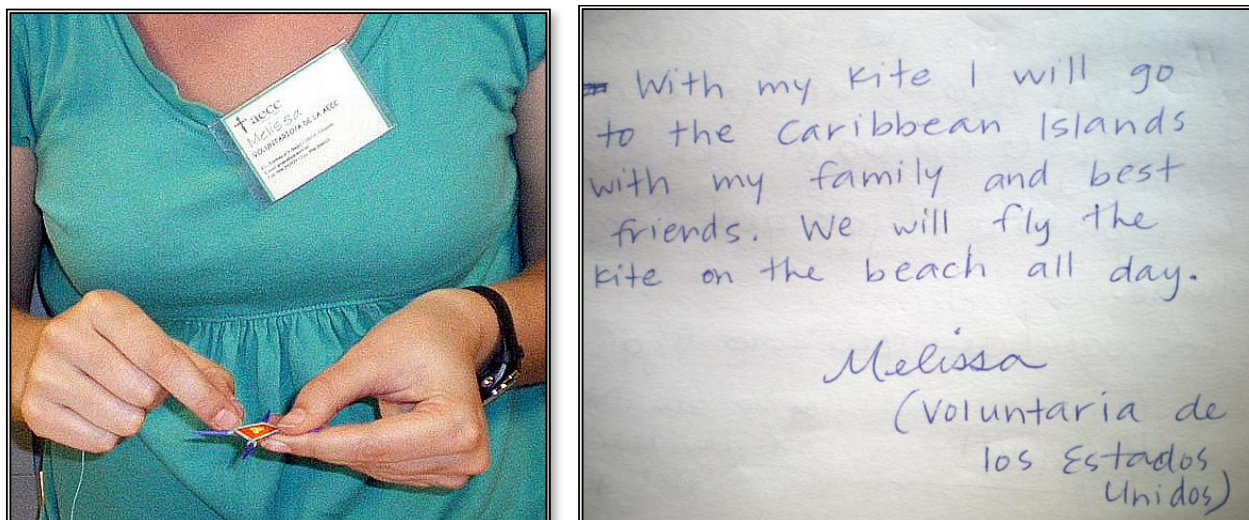 aecc
Melissa
VOLUNTARIO/A DE LA AECC
With my kite I will go
to the Caribbean Islands
with my family and best
friends. We will fly the
kite on the beach all day.
Melissa
(Voluntaria de
los Estados
Unidos)